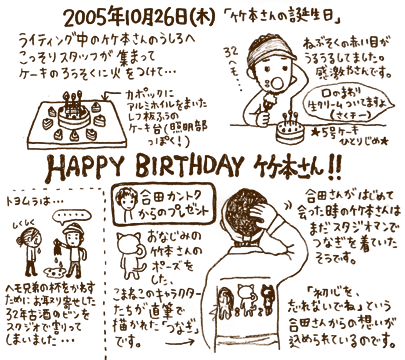 2005年10月26日(木)「竹本さんの誕生日」
ライティング中の竹本さんのうしろへ
こっそりスタッフが集まって
ケーキのろうそくに火をつけて…
カポックに
アルミホイルをまいた
レフ板ふうの
ケーキ台(照明部
っぽく!)
32
ヘモ…
ねぶそくの赤い目が
うるうるしてました。
感激やさんです。
口のまわり
生クリームついてますよ
(さくそー)
★5号ケーキ
ひとりじめ★
HAPPY BIRTHDAY 竹本さん!!
トラムラは…
しくしく
ヘモ兄弟の杯をかわす
ためにお取り寄せした
32年古酒のビンを
スタジオで割って
しまいました…
合田カントク
からのプレゼント
おなじみの
竹本さんの
ポーズを
した、
こまねこのキャラクター
たちが直筆で
描かれた「つなぎ」
です。
合田さんがはじめて
会った時の竹本さんは
まだスタジオマンで
つなぎを着ていた
そうです。
「初心を、
忘れないでね」という
合田さんからの想いが
込められているのです。